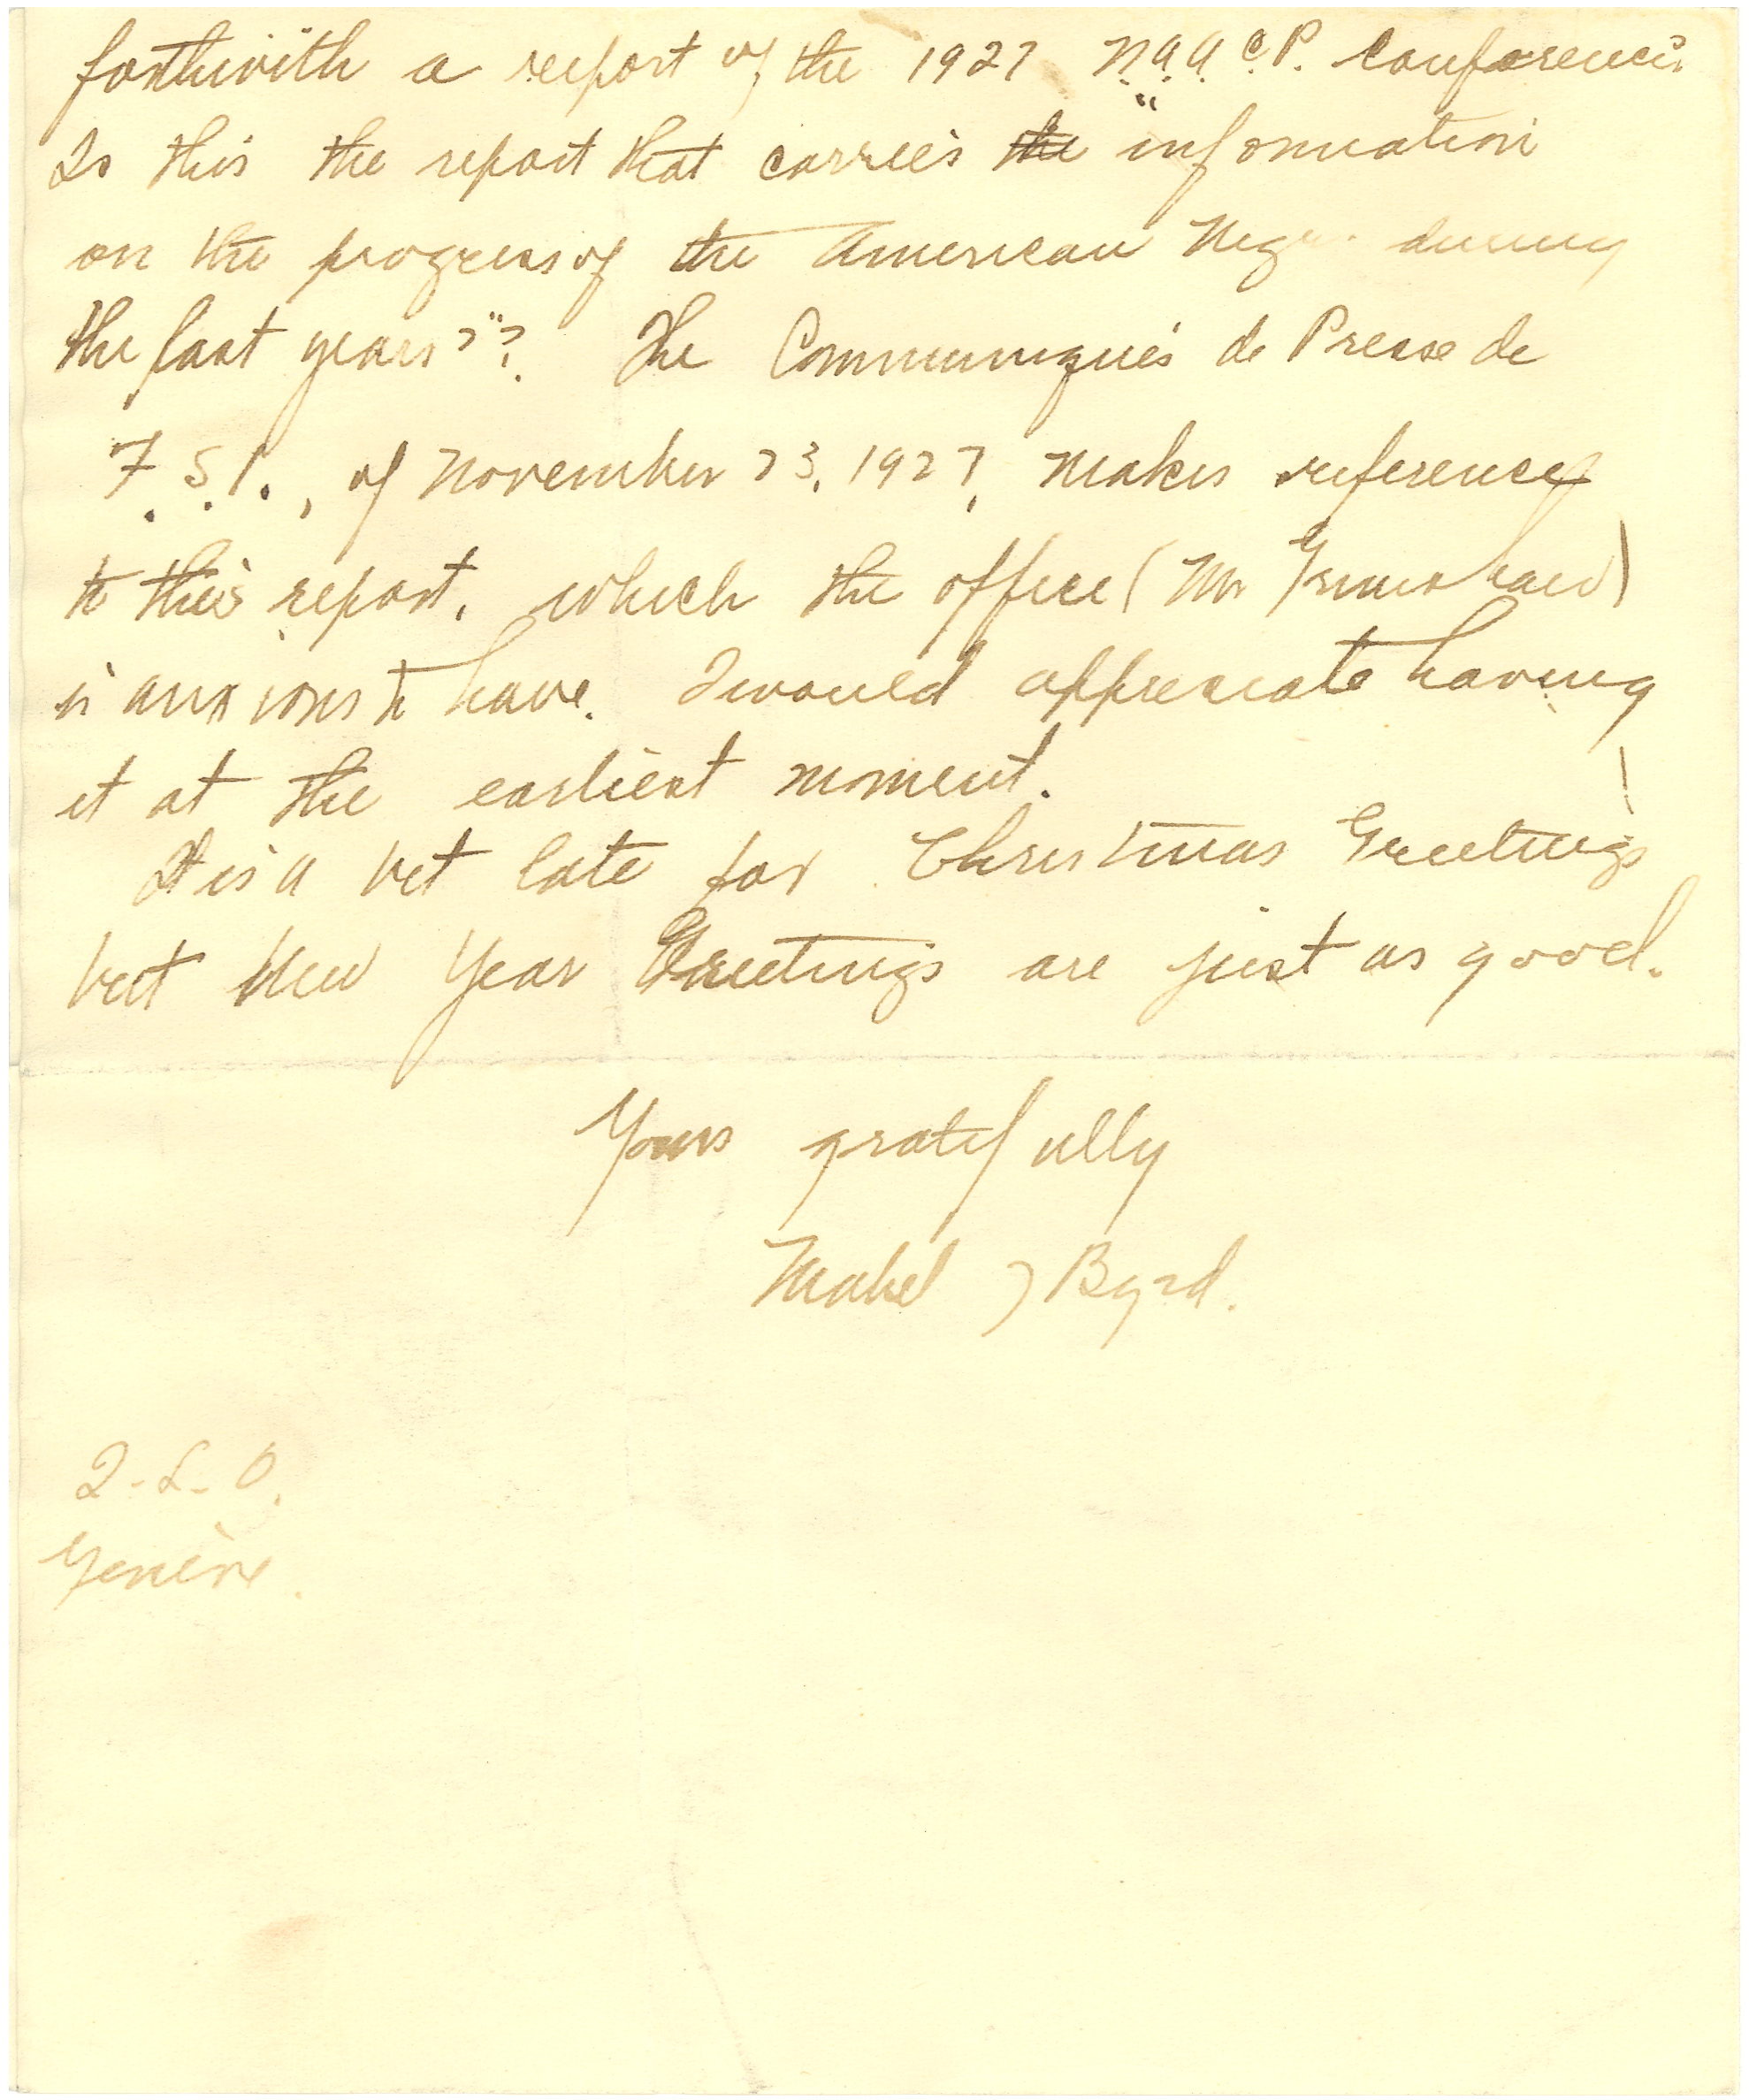 forthwith a report of the 1927 N.A.A.C.P. Conference.
Is this the report that carries the "information
on the progress of the American Negro during
the last years"? The Communiqués de Presse de
F.S.I., of November 23, 1927, makes reference
to this report, which the office (Mr Grimshaw)
is anxious to have. I would appreciate having
it at the earliest moment.
It is a bit late for Christmas Greetings
but New Year Greetings are just as good.
Yours gratefully
Mabel J Byrd.
I-L-O.
Genève.